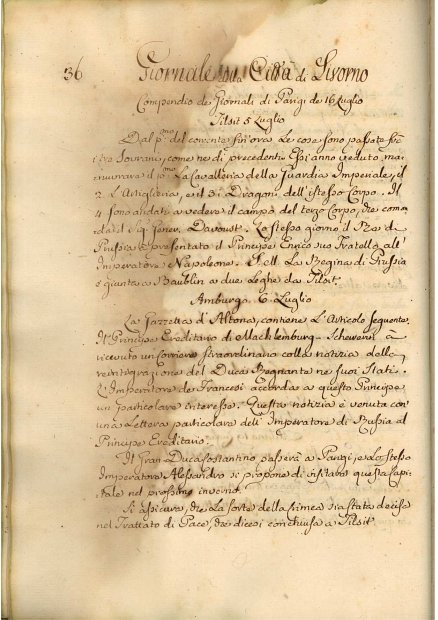 36 Giornale della Città di Livorno
Compendio de Giornali di Parigi de 16 Luglio
Tilsit 5 Luglio
Dal pmo. del corrente sin'ora Le cose sono passate fra
i tre Sovrani, come ne di precedenti. Essi anno veduto ma:
nuvrare il 1mo La Cavalleria della Guardia Imperiale, il
2 L'Artiglieria, e il 3 i Dragoni dell'istesso Corpo. Il
4 sono andati a vedere il campo del terzo Corpo, che coma
da il Sig. Gener. Davoust. Lo stesso giorno il Re di
Prussia à presentato il Principe Enrico suo Fratello all'
Imperatore Napoleone. La Regina di Prussia
è giunta a Baublin a due leghe da Tilsit
Amburgo 6. Luglio
La Gazzetta d'Altona, contiene L'Articolo seguente.
Il Principe Ereditario di Macklemburg-Schewerin à
ricevuto un Corriere straordinario colla notizia della
reintegrazione del Duca Regnante ne suoi Stati.
L'Imperatore de Francesi accorda a questo Principe
un particolare interesse. Questa notizia è venuta con
una Lettera particolare dell'Imperatore di Russia al
Principe Ereditario.
Il Gran Duca Costantino passerà a Parigi, e Lo stesso
Imperatore Alessandro si propone di visitare questa Capi:
tale nel prossimo inverno.
Si assicura, che La sorte della Crimea sia stata decisa
nel Trattato di Pace, che dicesi conchiusa a Tilsit.